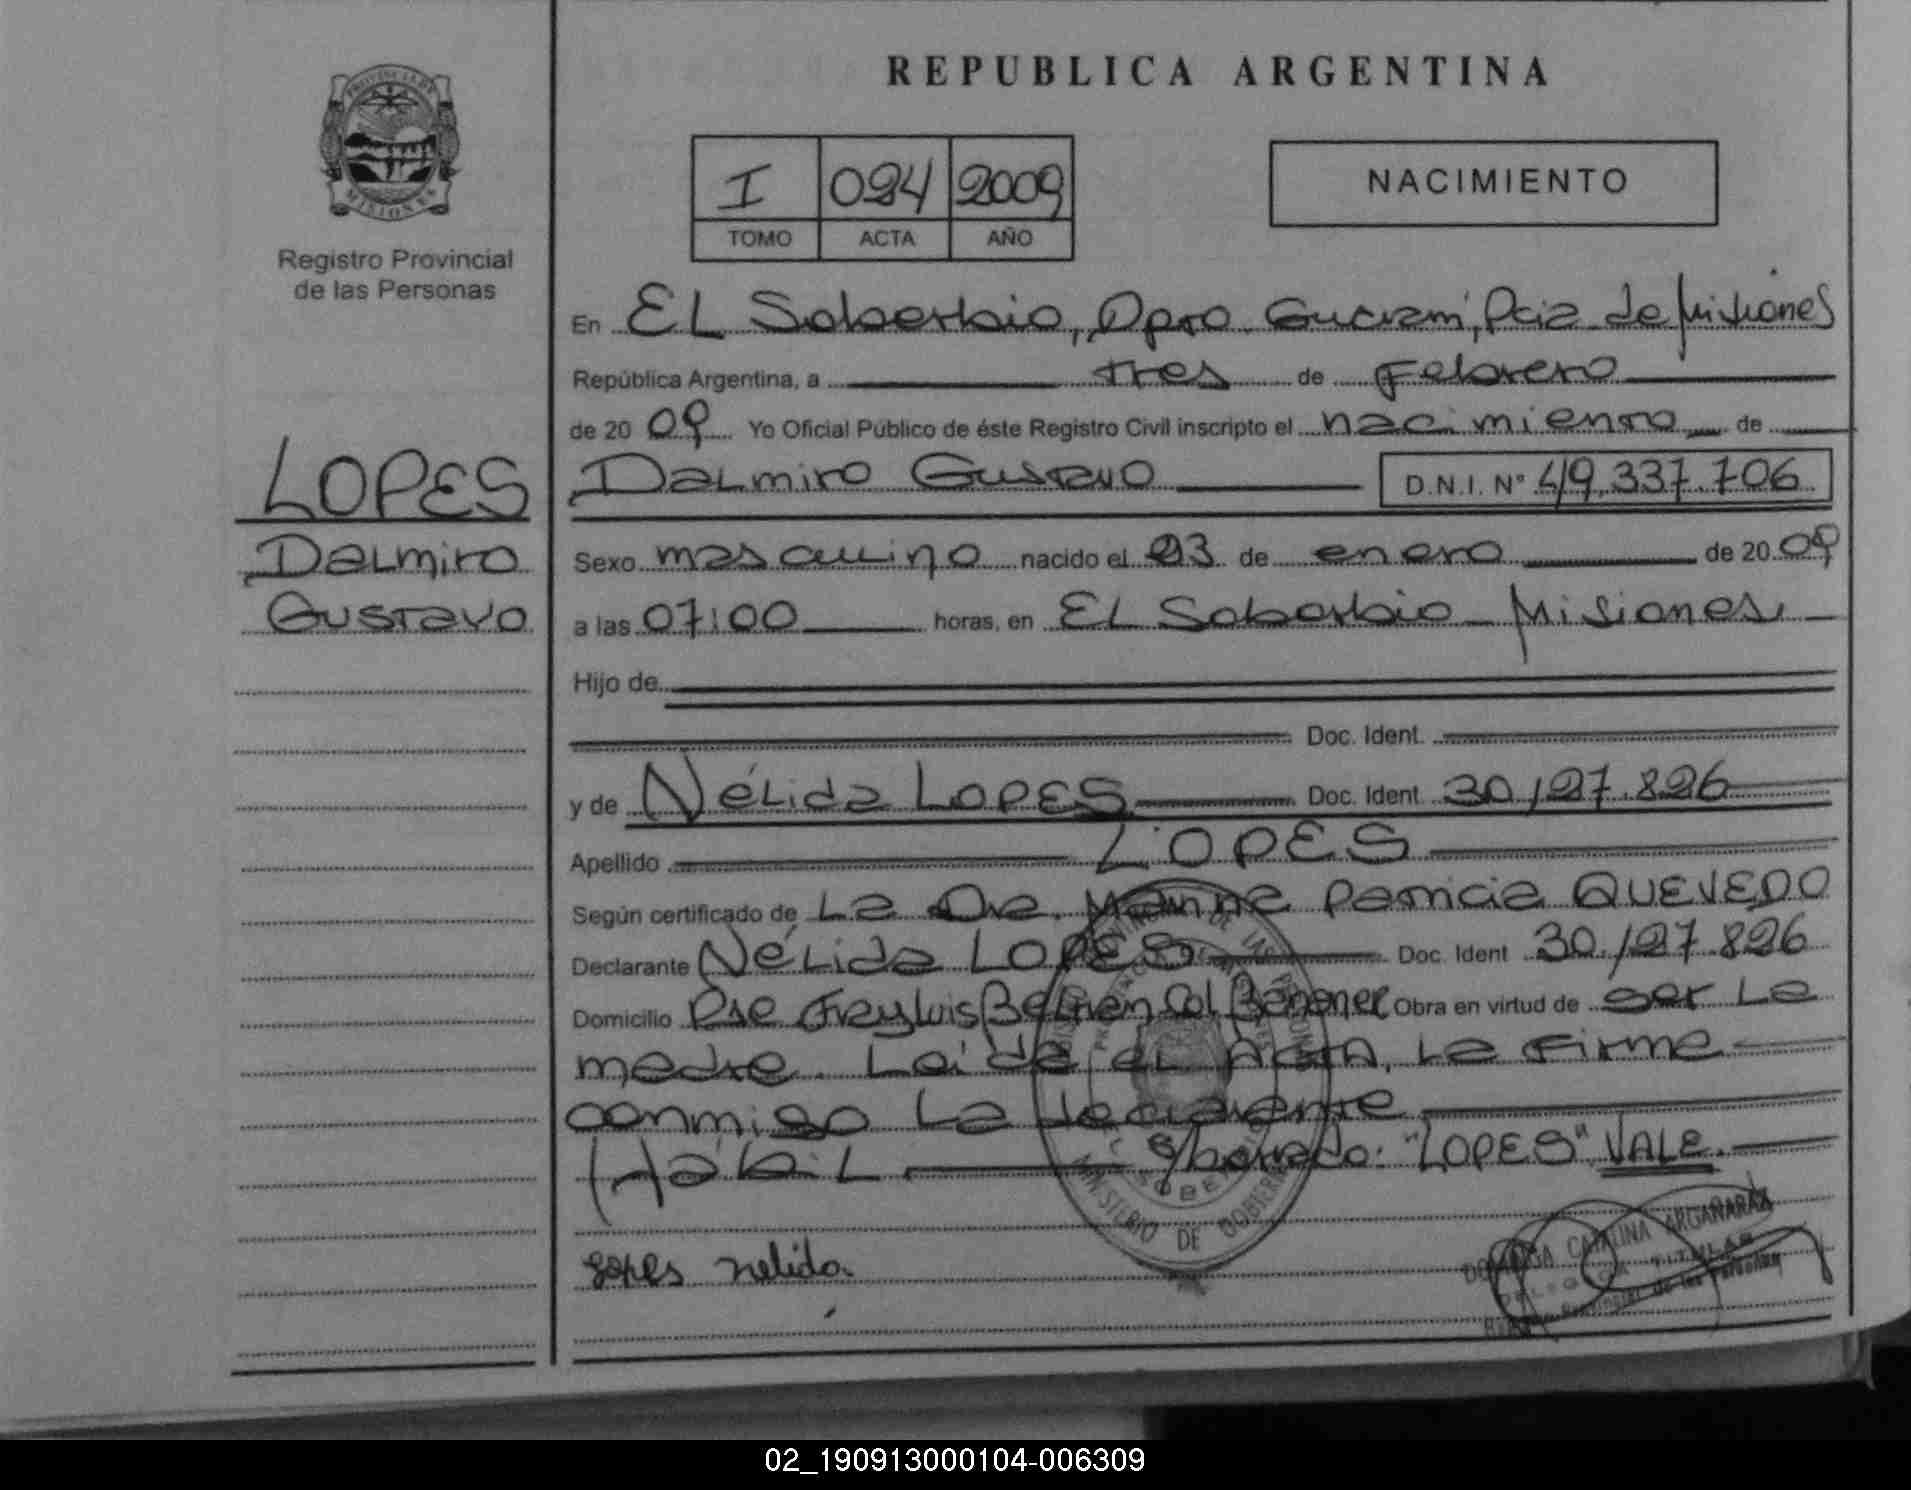 REPUBLICA ARGENTINA
PROVINCIA DE
MISIONES
Registro Provincial
de las Personas
I 024 2009
TOMO ACTA AÑO
NACIMIENTO
En EL Soberbio, Dpto. Guaraní, Pcia de Misiones
República Argentina, a tres de Febrero
de 20 09 Yo Oficial Público de éste Registro Civil inscripto el nacimiento de
LOPES
Dalmiro
Gustavo
Dalmiro Gustavo D.N.I. N° 49.337.706
Sexo masculino nacido el 23 de enero de 20 09
a las 07:00 horas, en EL Soberbio Misiones
Hijo de
Doc. Ident.
y de Nélida LOPES Doc. Ident. 30.127.826
Apellido LOPES
Según certificado de La Dra. Patricia QUEVEDO
Declarante Nélida LOPES Doc. Ident 30.127.826
Domicilio Pje Fray Luis Beltrán Col Obra en virtud de ser La
madre. Leída el ACTA, La Firma
conmigo La declarante
Hábil s/borrado: "LOPES" VALE.
MINISTERIO DE GOBIERNO
lopes nelida
CATALINA ARGAÑARAZ
TITULAR
Provincial de las Personas
02_190913000104-006309